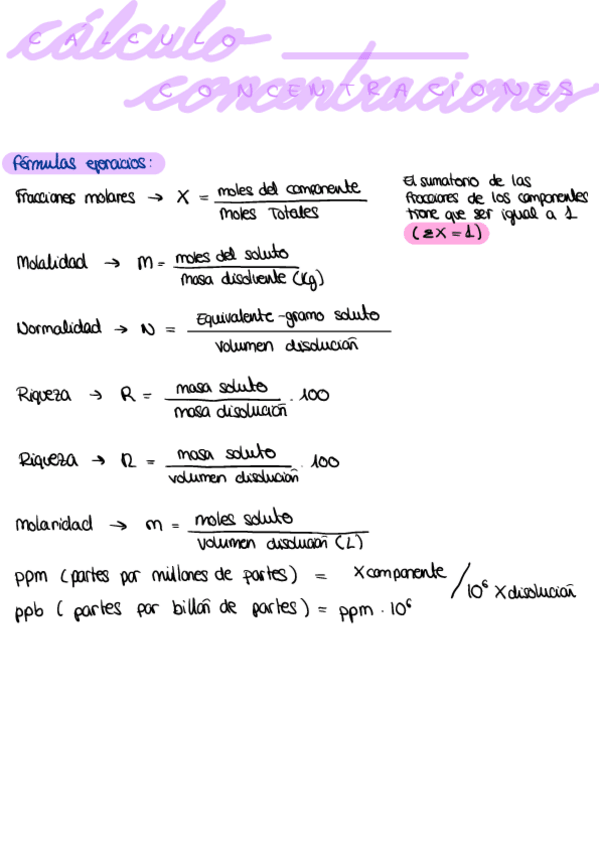 cálculo
CÁLCULO
concentraciones
CONCENTRACIONES
Fórmulas ejercicios:
Fracciones molares → X = moles del componente / moles Totales
El sumatorio de las
fracciones de los componentes
tiene que ser igual a 1
(ΣX = 1)
Molalidad → M = moles del soluto / masa disolvente (Kg)
Normalidad → N = Equivalente-gramo soluto / volumen disolución
Riqueza → R = masa soluto / masa disolución · 100
Riqueza → R = masa soluto / volumen disolución · 100
Molaridad → m = moles soluto / volumen disolución (L)
ppm (partes por millones de partes) = X componente / 10⁶ X disolución
ppb (partes por billón de partes) = ppm · 10⁶